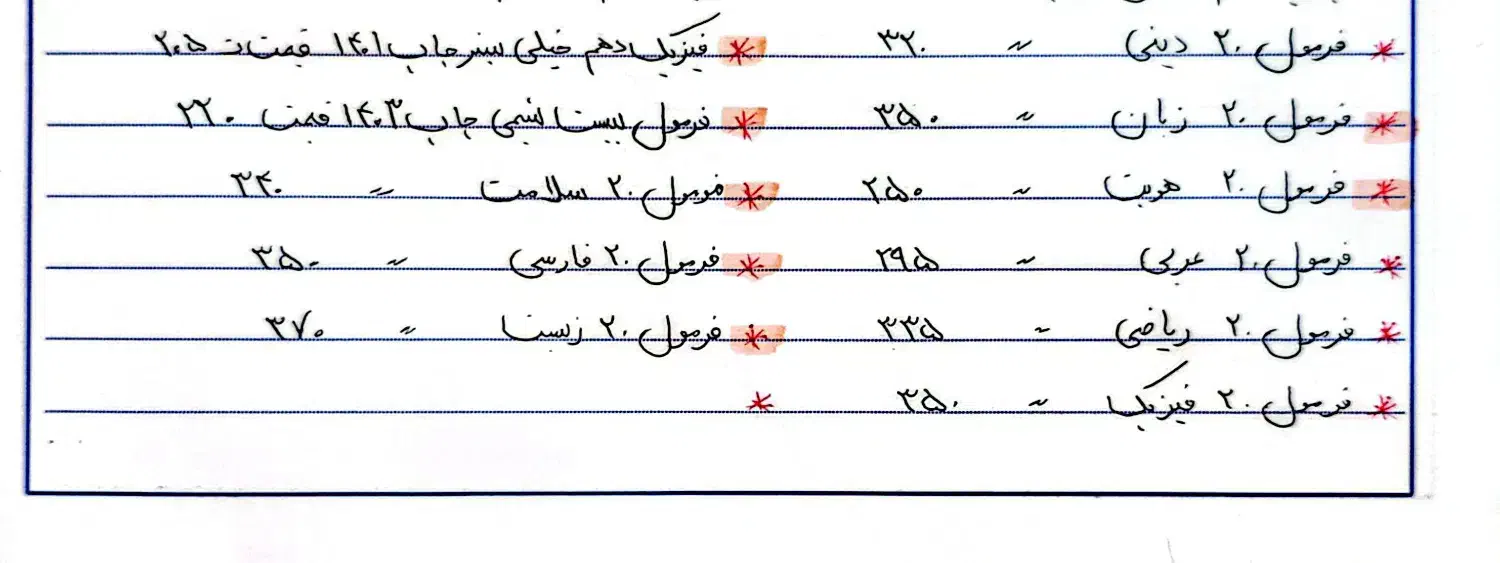 فرمول ۲۰ دینی 〃 ۳۲۰
فرمول ۲۰ زبان 〃 ۳۵۰
فرمول ۲۰ هویت 〃 ۲۵۰
فرمول ۲۰ عربی 〃 ۲۹۵
فرمول ۲۰ ریاضی 〃 ۳۳۵
فرمول ۲۰ فیزیک 〃 ۳۵۰
فیزیک دهم خیلی سبز چاپ ۱۴۰۱ قیمت ۲۰۵
فرمول بیست شیمی چاپ ۱۴۰۳ قیمت ۲۲۰
فرمول ۲۰ سلامت 〃 ۲۴۰
فرمول ۲۰ فارسی 〃 ۳۵۰
فرمول ۲۰ زیست 〃 ۳۷۰